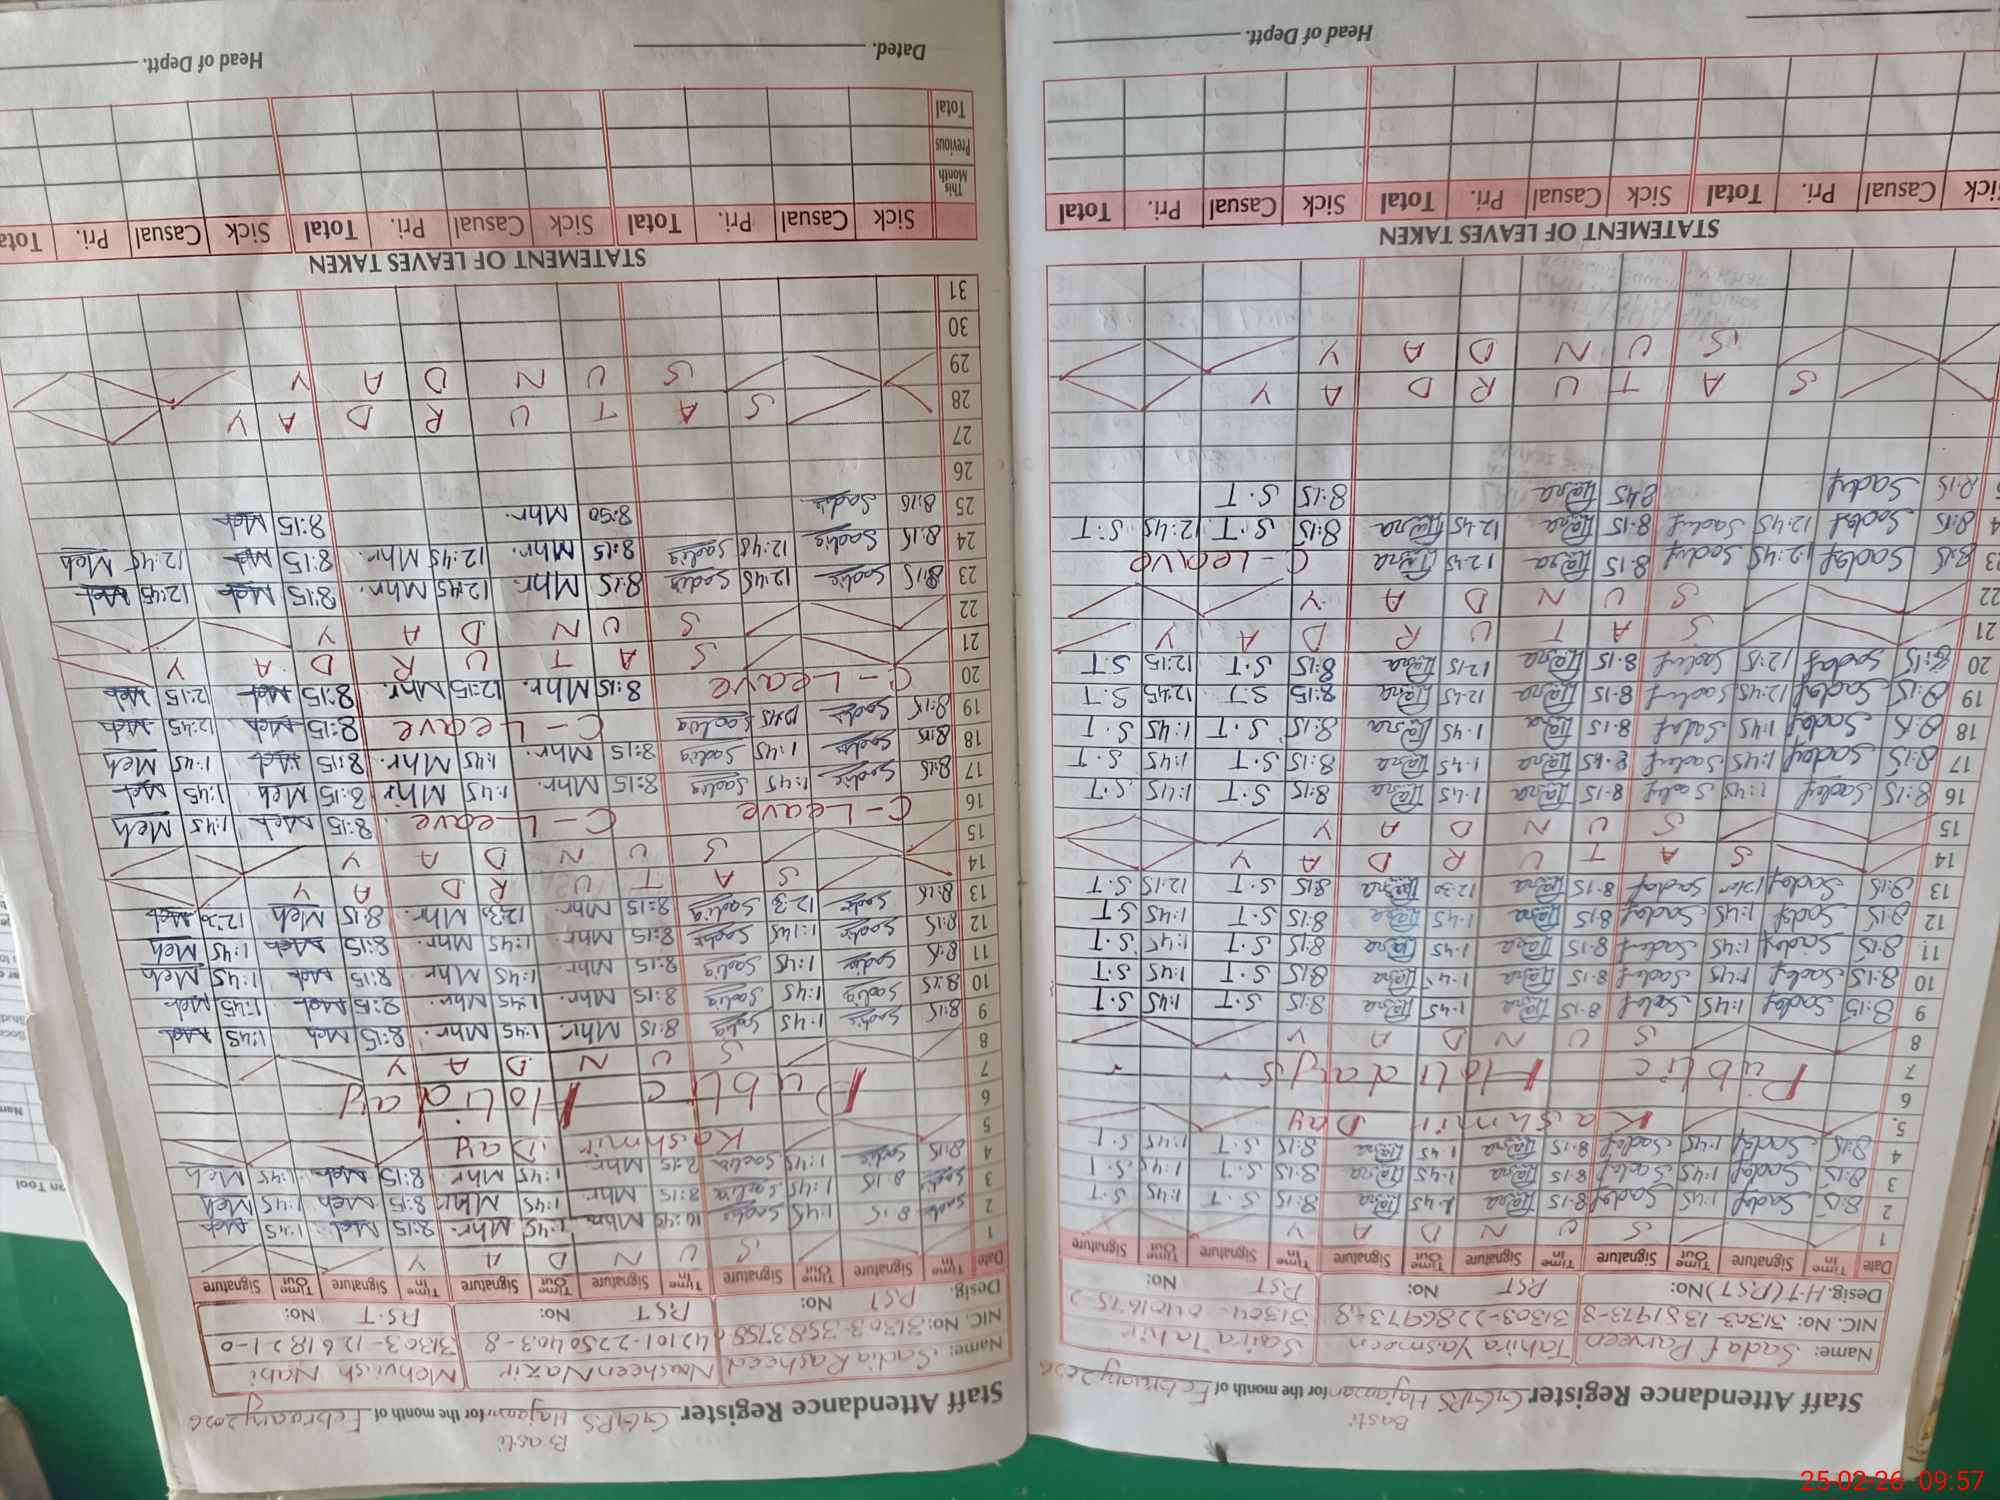 Basti
Staff Attendance Register GGPS Hajamar for the month of February 2026
Name: Sadaf Parveen Tahira Yasmeen Saira Tahir
NIC. No: 31303-1381973-8 31303-2286973-8 31304-0401675-2
Desig. H.T (PST) No: PST No: PST No:
Date Time In Signature Time Out Signature Time In Signature Time Out Signature Time In Signature Time Out Signature
1 S U N D A Y
2 8:15 Sadaf 1:45 Sadaf 8:15 1:45 8:15 S.T 1:45 S.T
3 8:15 Sadaf 1:45 Sadaf 8:15 1:45 8:15 S.T 1:45 S.T
4 8:15 Sadaf 1:45 Sadaf 8:15 1:45 8:15 S.T 1:45 S.T
5 Kashmir Day
6
7 Public Holidays
8 S U N D A Y
9 8:15 Sadaf 1:45 Sadaf 8:15 1:45 8:15 S.T 1:45 S.T
10 8:15 Sadaf 1:45 Sadaf 8:15 1:45 8:15 S.T 1:45 S.T
11 8:15 Sadaf 1:45 Sadaf 8:15 1:45 8:15 S.T 1:45 S.T
12 8:15 Sadaf 1:45 Sadaf 8:15 1:45 8:15 S.T 1:45 S.T
13 8:15 Sadaf Sadaf 8:15 12:30 8:15 S.T 12:15 S.T
14 S A T U R D A Y
15 S U N D A Y
16 8:15 Sadaf 1:45 Sadaf 8:15 1:45 8:15 S.T 1:45 S.T
17 8:15 Sadaf 1:45 Sadaf 1:45 8:15 S.T 1:45 S.T
18 8:15 Sadaf 1:45 Sadaf 8:15 1:45 8:15 S.T 1:45 S.T
19 8:15 Sadaf 12:45 Sadaf 8:15 12:45 8:15 S.T 12:45 S.T
20 8:15 Sadaf 12:15 Sadaf 8:15 12:15 8:15 S.T 12:15 S.T
21 S A T U R D A Y
22 S U N D A Y
23 8:15 Sadaf 12:45 Sadaf 8:15 12:45 C-Leave
24 8:15 Sadaf 12:45 Sadaf 8:15 12:45 8:15 S.T 12:45 S.T
8:15 Sadaf 8:45 8:15 S.T
S A T U R D A Y
S U N D A Y
STATEMENT OF LEAVES TAKEN
Sick Casual Pri. Total Sick Casual Pri. Total Sick Casual Pri. Total
Head of Deptt.
Basti
Staff Attendance Register GGPS Hajamar for the month of February 2026
Name: Sadia Rasheed Nosheen Nazir Mehvish Nabi
NIC. No: 31303-3583758 42101-2250403-8 31303-1261821-0
Desig. PST No: PST No: PS.T No:
Date Time In Signature Time Out Signature Time In Signature Time Out Signature Time In Signature Time Out Signature
1 S U N D A Y
2 8:15 1:45 Sadia 10:45 Mhr 1:45 Mhr. 8:15 Meh 1:45 Meh
3 8:15 1:45 Sadia 8:15 Mhr. 1:45 Mhr 8:15 Meh 1:45 Meh
4 8:15 Sadia 1:45 Sadia 8:15 Mhr. 1:45 Mhr 8:15 Meh 1:45 Meh
5 Kashmir Day
6
7 Public Holiday
8 S U N D A Y
9 8:15 Sadia 1:45 Sadia 8:15 Mhr. 1:45 Mhr. 8:15 Meh 1:45 Meh
10 8:15 Sadia 1:45 Sadia 8:15 Mhr. 1:45 Mhr. 8:15 Meh 1:45 Meh
11 8:15 Sadia 1:45 Sadia 8:15 Mhr. 1:45 Mhr 8:15 Meh 1:45 Meh
12 8:15 Sadia 1:45 Sadia 8:15 Mhr. 1:45 Mhr. 8:15 Meh 1:45 Meh
13 8:15 Sadia 12:3 Sadia 8:15 Mhr. 12:30 Mhr. 8:15 Meh 12:30 Meh
14 S A T U R D A Y
15 S U N D A Y
16 C-Leave C-Leave 8:15 Meh 1:45 Meh
17 8:15 Sadia 1:45 Sadia 8:15 Mhr. 1:45 Mhr 8:15 Meh 1:45 Meh
18 8:15 Sadia 1:45 Sadia 8:15 Mhr. 1:45 Mhr. 8:15 Meh 1:45 Meh
19 8:15 Sadia 12:45 Sadia C-Leave 8:15 Meh 12:45 Meh
20 C-Leave 8:15 Mhr. 12:15 Mhr. 8:15 Meh 12:15 Meh
21 S A T U R D A Y
22 S U N D A Y
23 8:15 Sadia 12:45 Sadia 8:15 Mhr. 12:45 Mhr. 8:15 Meh 12:45 Meh
24 8:15 Sadia 12:45 Sadia 8:15 Mhr. 12:45 Mhr. 8:15 Meh 12:45 Meh
25 8:16 Sadia 8:50 Mhr. 8:15 Meh
26
27
28 S A T U R D A Y
29 S U N D A Y
30
31
STATEMENT OF LEAVES TAKEN
Sick Casual Pri. Total Sick Casual Pri. Total Sick Casual Pri. Total
This Month
Previous
Total
Dated. Head of Deptt.
25-02-26 09:57